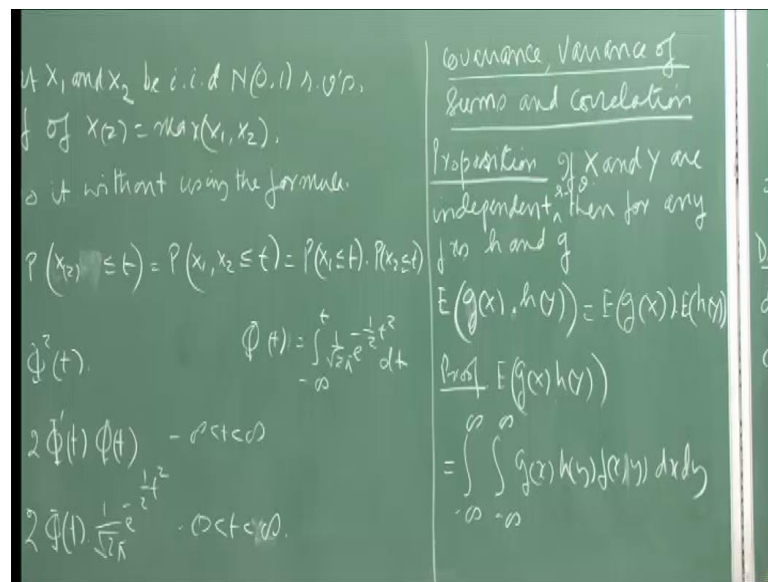 X₁ and X₂ be i.i.d N(0,1) r.v's.
of X(2) = max(X₁, X₂).
it without using the formula.
P(X(2) ≤ t) = P(X₁, X₂ ≤ t) = P(X₁ ≤ t). P(X₂ ≤ t)
Φ²(t). Φ(t) = ∫_{-∞}^{t} 1/√2π e^{-½t²} dt
2 Φ'(t) Φ(t) -∞<t<∞
2 Φ(t). 1/√2π e^{-½t²} -∞<t<∞.
Covariance, Variance of
Sums and correlation
Proposition If X and Y are
independent r.v.s then for any
fxs h and g
E(g(x).h(y)) = E(g(x)).E(h(y))
Proof. E(g(x)h(y))
= ∫_{-∞}^{∞} ∫_{-∞}^{∞} g(x) h(y) f(x,y) dxdy